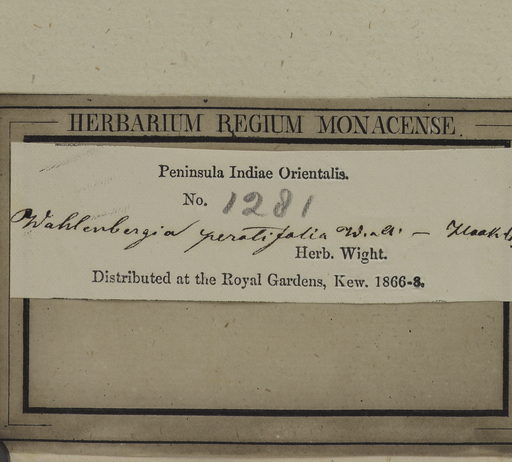 HERBARIUM REGIUM MONACENSE.
Peninsula Indiae Orientalis.
No. 1281
Wahlenbergia peratifolia W. & A. –
Herb. Wight.
Distributed at the Royal Gardens, Kew. 1866-8.